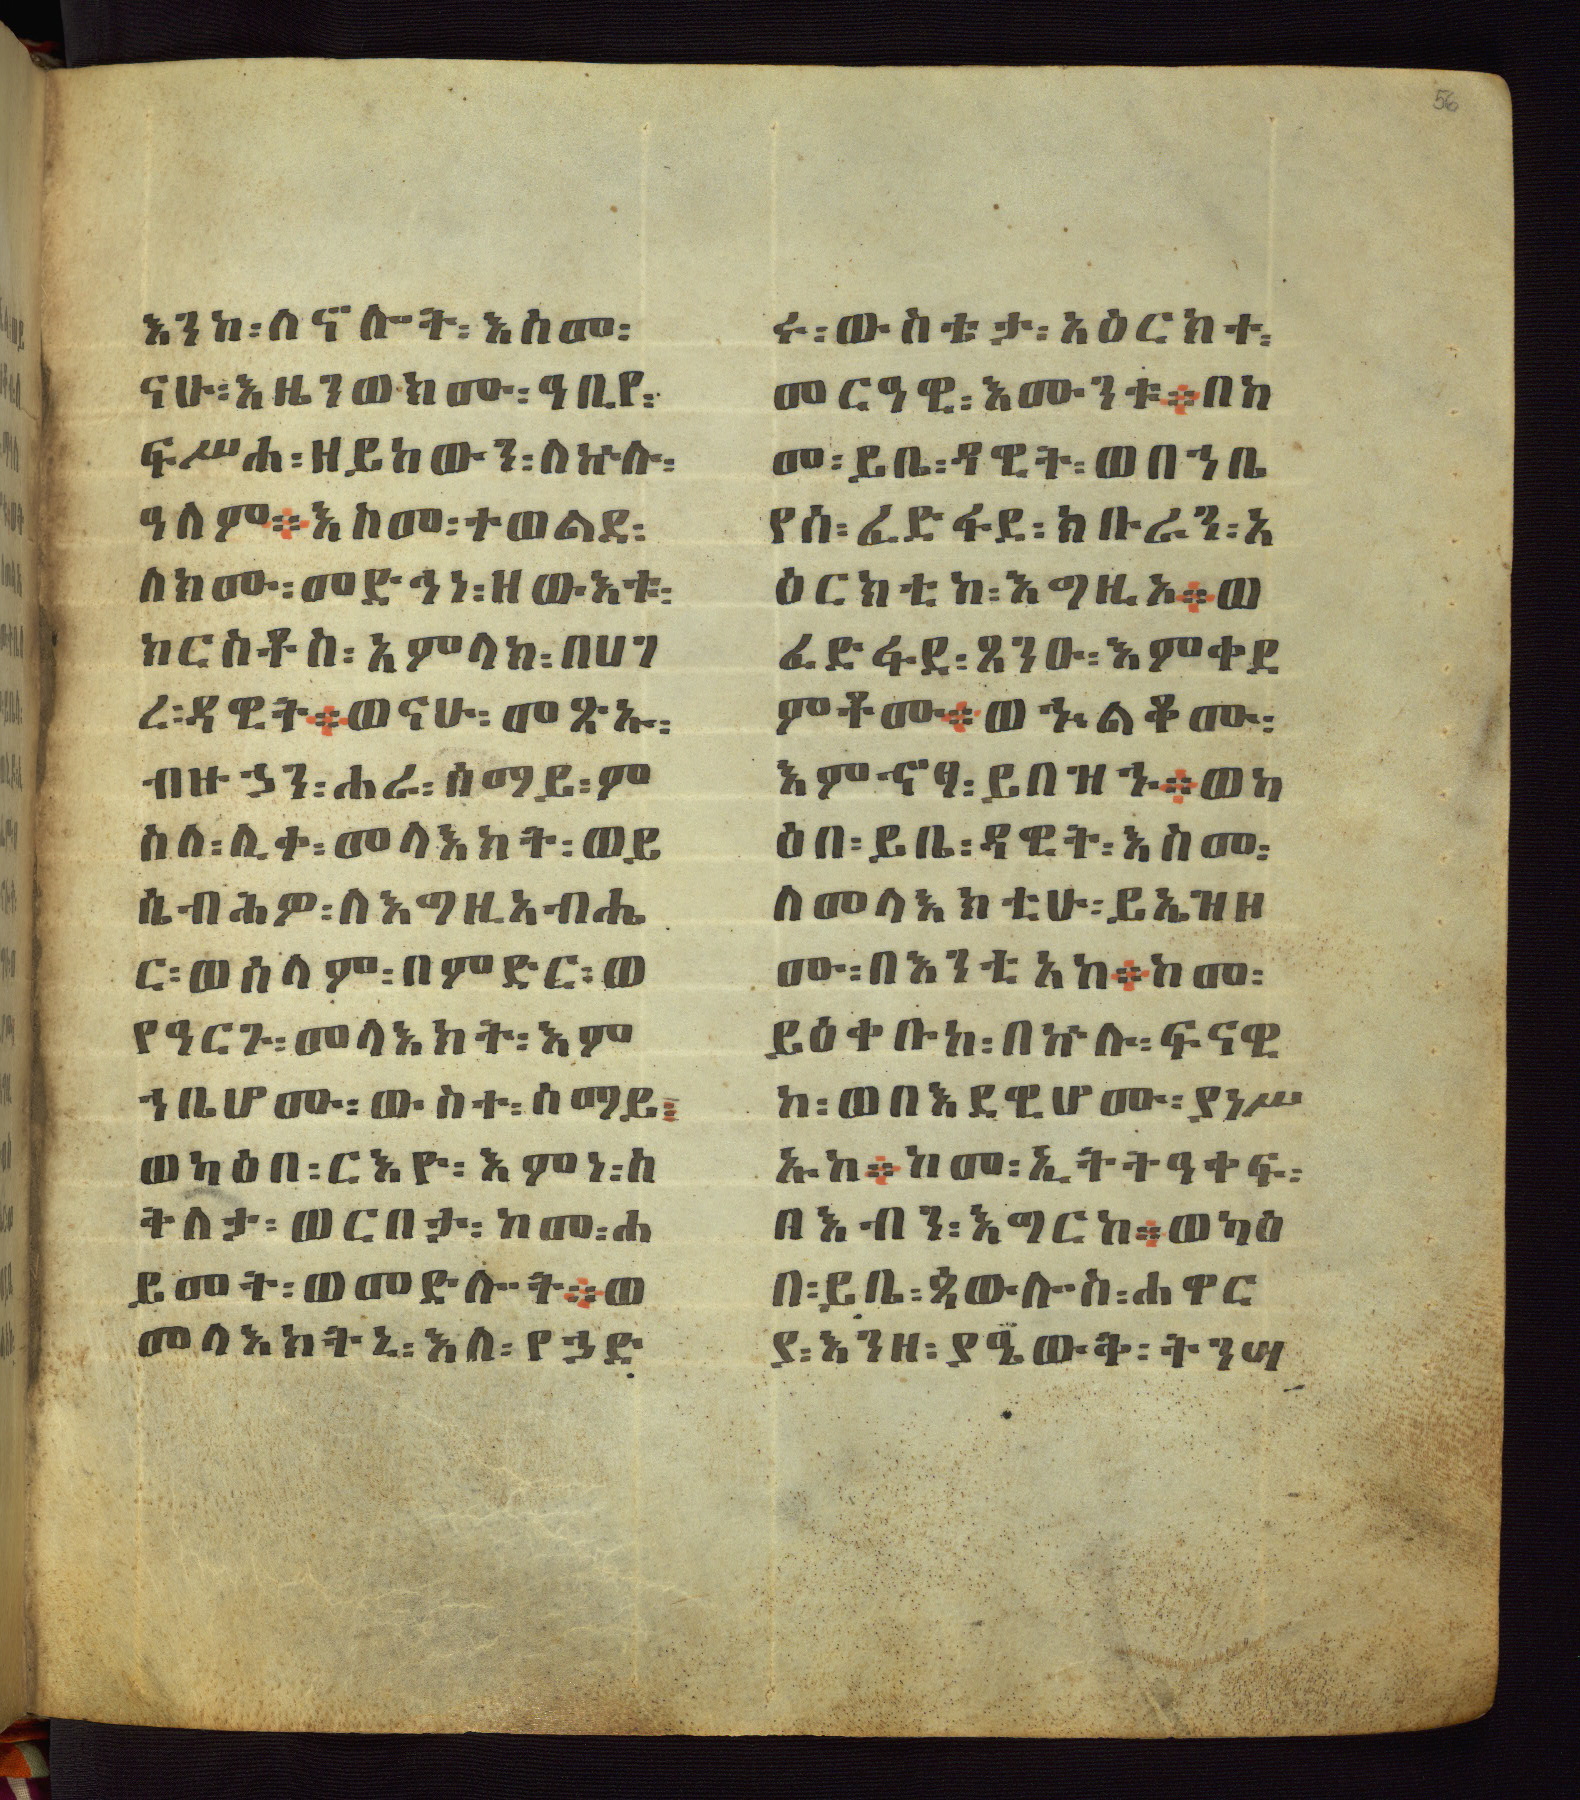 56
እንከ፡ለኖሎት፡እስመ፡
ናሁ፡እዜንወክሙ፡ዓቢየ፡
ፍሥሐ፡ዘይከውን፡ለኵሉ፡
ዓለም።እስመ፡ተወልደ፡
ለክሙ፡መድኅነ፡ዘውእቱ፡
ክርስቶስ፡አምላክ፡በሀገ
ረ፡ዳዊት።ወናሁ፡መጽኡ፡
ብዙኃን፡ሐራ፡ሰማይ፡ም
ስለ፡ሊቀ፡መላእክት፡ወይ
ሴብሕዎ፡ለእግዚአብሔ
ር፡ወሰላም፡በምድር፡ወ
የዓርጉ፡መላእክት፡እም
ኀቤሆሙ፡ውስተ፡ሰማይ፡
ወካዕበ፡ርእዮ፡እምነ፡ስ
ትለታ፡ወርበታ፡ከመ፡ሐ
ይመት፡ወመድሎት።ወ
መላእክትኒ፡እለ፡የኃድ
ሩ፡ውስቴታ፡አዕርክተ፡
መርዓዊ፡እሙንቱ።በከ
መ፡ይቤ፡ዳዊት፡ወበኀቤ
የሰ፡ፈድፋደ፡ክቡራን፡አ
ዕርክቲከ፡እግዚአ።ወ
ፈድፋደ፡ጸንዑ፡እምቀደ
ምቶሙ።ወኍልቆሙ፡
እምኖፃ፡ይበዝኁ።ወካ
ዕበ፡ይቤ፡ዳዊት፡እስመ፡
ለመላእክቲሁ፡ይኤዝዞ
ሙ፡በእንቲአከ።ከመ፡
ይዕቀቡከ፡በኵሉ፡ፍናዊ
ከ፡ወበእደዊሆሙ፡ያነሥ
ኡከ።ከመ፡ኢትትዓቀፍ፡
በእብን፡እግርከ።ወካዕ
በ፡ይቤ፡ጳውሎስ፡ሐዋር
ያ፡እንዘ፡ያዔውቅ፡ትንሣ